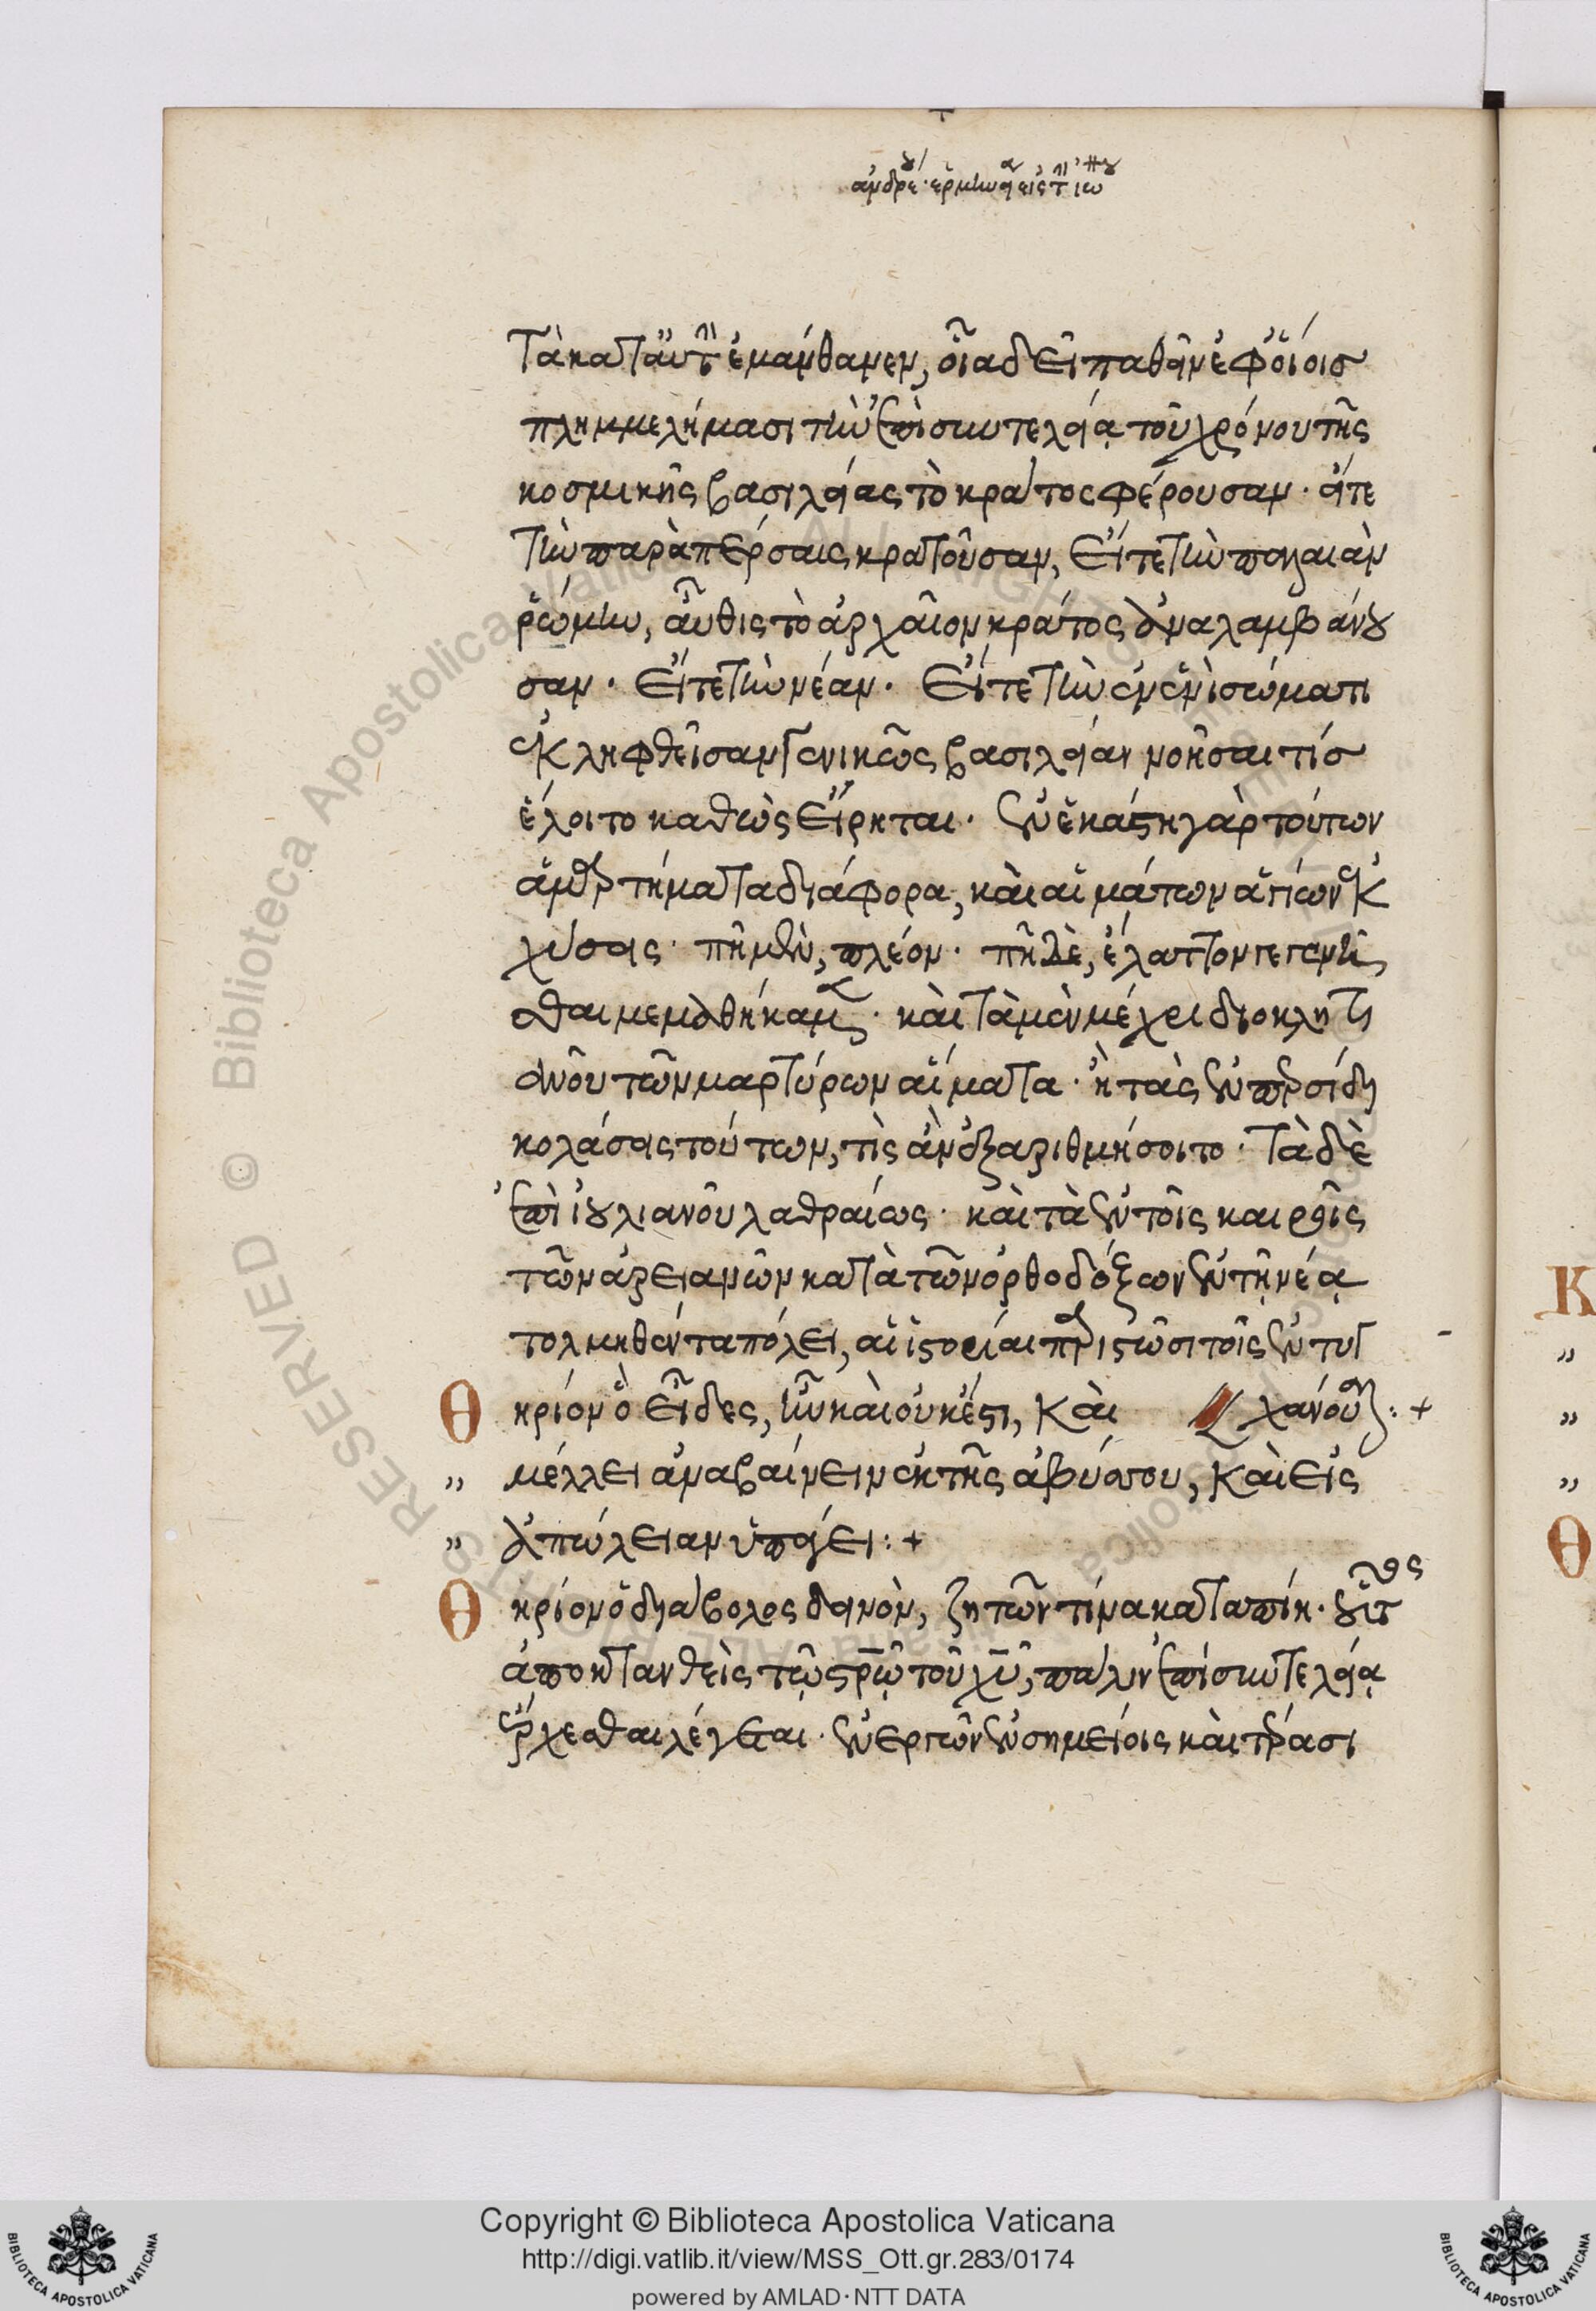 ἀνδρέου ἑρμηνεία εἰς τὴν ἀπου
τὰ κατ' αὐτὴν ἐμάνθανεν, οἷα δεῖ παθεῖν ἐφ' οἵοις
πλημμελήμασι τὴν ἐπὶ συντελείᾳ τοῦ χρόνου τῆς
κοσμικῆς βασιλείας τὸ κράτος φέρουσαν· εἴτε
τὴν παρὰ πέρσαις κρατοῦσαν, εἴτε τὴν παλαιὰν
ῥώμην, αὖθις τὸ ἀρχαῖον κράτος ἀναλαμβάνου
σαν· εἴτε τὴν νέαν· εἴτε τὴν ἐν ἑνὶ σώματι
ἐκληφθεῖσαν γενικῶς βασιλείαν νοῆσαι τίς
ἕλοιτο καθὼς εἴρηται· ἐν ἑκάστη γὰρ τούτων
ἁμαρτήματα διάφορα, καὶ αἱμάτων ἁγίων ἐκ
χύσεις· πῆ μὲν, πλέον· πῆ δὲ, ἔλαττον γεγενῆ
σθαι μεμαθήκαμεν· καὶ τὰ μὲν μέχρι διοκλητι
ανοῦ τῶν μαρτύρων αἵματα· ἢ τὰς ἐν περσίδι
κολάσεις τούτων, τίς ἂν ἐξαριθμήσοιτο· τὰ δὲ
ἐπὶ ἰουλιανοῦ λαθραίως· καὶ τὰ ἐν τοῖς καιροῖς
τῶν ἀρειανῶν κατὰ τῶν ὀρθοδόξων ἐν τῇ νέᾳ
τολμηθέντα πόλει, αἱ ἱστορίαι παριστῶσι τοῖς ἐντυγ
θηρίον ὃ εἶδες, ἦν καὶ οὐκ ἔστι, καὶ χάνουσι :+
μέλλει ἀναβαίνειν ἐκ τῆς ἀβύσσου, καὶ εἰς
ἀπώλειαν ὑπάγει :+
θηρίον ὁ διάβολος ἀεὶ νοὸν, ζητῶν τίνα καταπίη· οὗτος
ἀποκτανθεὶς τῷ στρῷ τοῦ χῦ, πάλιν ἐπὶ συντελείᾳ
ἔρχεσθαι λέγεται· ἐνεργῶν ἐν σημείοις καὶ τέρασι